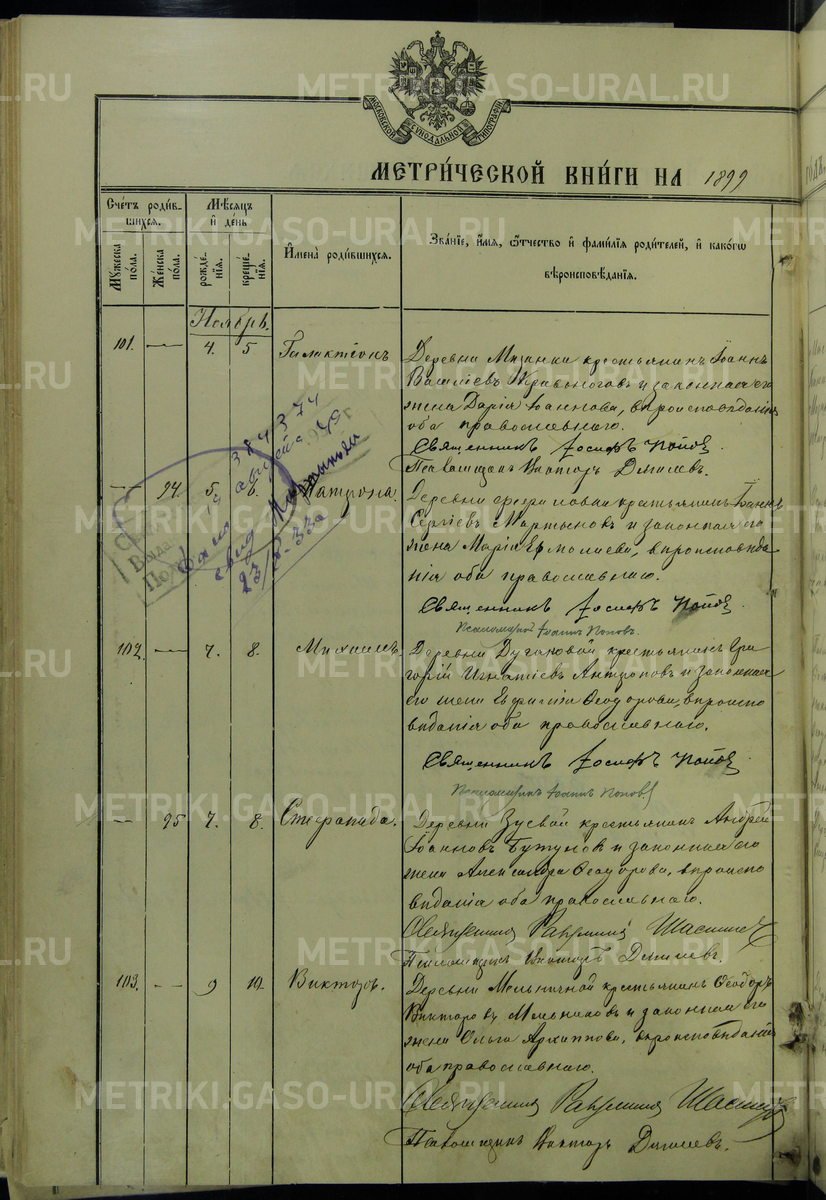 МОСКОВСКОЙ СУНОДАЛЬНОЙ ТИПОГРАФІИ
МЕТРИ́ЧЕСКОЙ КНИ́ГИ НА 1899
Счетъ роди́в-
шихся.
Мѣсяцъ
и́ де́нь
И҆мена̀ роди́вшихся.
Зва́нїе, и҆́мя, ѻ҆́тчество и҆ фами́лїя роди́телей, и҆ какѡ́гѡ
вѣроисповѣ́данїя.
Мꙋ́жеска
по́ла.
Же́нска
по́ла.
рожде́-
нїя.
креще́-
нїя.
Ноябрь.
101. — 4. 5 Галактіонъ
Деревни Мазанки крестьянинъ Іоаннъ
Василіевъ и законная его
жена Дарія Іоаннова, вѣроисповѣданія
оба православнаго.
Священникъ Іосифъ Поповъ
Псаломщикъ Викторъ
— 94. 5. 6. Матрона.
Деревни крестьянинъ Іоаннъ
Сергіевъ Мартыновъ и законная его
жена Марія Ермолаева, вѣроисповѣда
нія оба православнаго.
Священникъ Іосифъ Поповъ.
Псаломщикъ Іоаннъ Поповъ.
102. — 7. 8. Михаилъ.
Деревни Дугановой крестьянинъ Гри
горій Игнатіевъ Антроповъ и законная
его жена Евфимія Ѳеодорова, вѣроиспо
вѣданія оба православнаго.
Священникъ Іосифъ Поповъ
Псаломщикъ Іоаннъ Поповъ
— 95 7. 8. Стефанида.
Деревни Зуевой крестьянинъ Андрей
Іоанновъ и законная его
жена Александра Ѳеодорова, вѣроиспо
вѣданія оба православнаго.
Священникъ
Псаломщикъ Викторъ
103. — 9 10. Викторъ.
Деревни Мельничной крестьянинъ Ѳеодоръ
Викторовъ Мельниковъ и законная его
жена Ольга Архиппова, вѣроисповѣданія
оба православнаго.
Священникъ
Псаломщикъ Викторъ
384374
Мартынова
METRIKI.GASO-URAL.RU